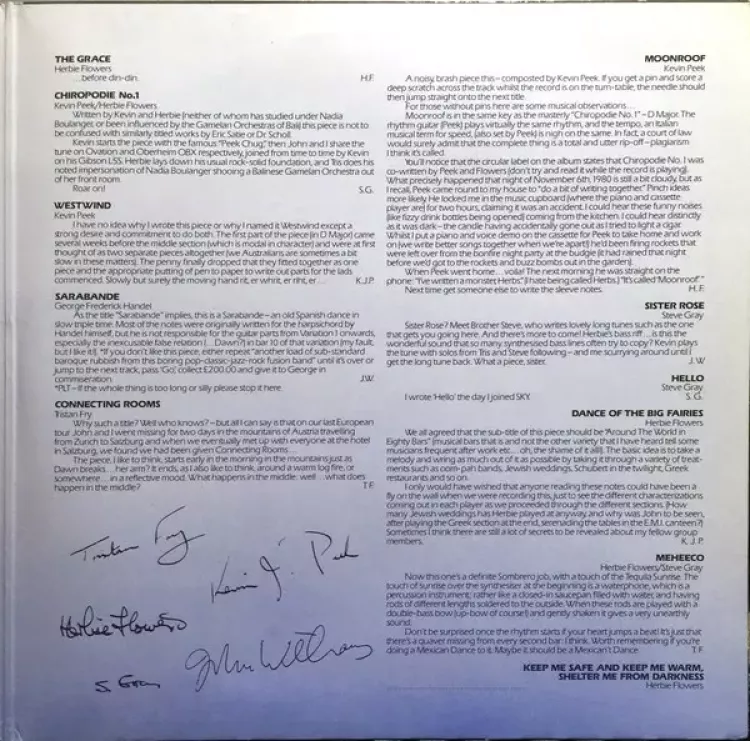 THE GRACE
Herbie Flowers
...before din-din. H.F.
CHIROPODIE No.1
Kevin Peek/Herbie Flowers
Written by Kevin and Herbie (neither of whom has studied under Nadia
Boulanger, or been influenced by the Gamelan Orchestras of Bali) this piece is not to
be confused with similarly titled works by Eric Satie or Dr. Scholl.
Kevin starts the piece with the famous "Peek Chug", then John and I share the
tune on Ovation and Oberheim OBX respectively, joined from time to time by Kevin
on his Gibson L5S. Herbie lays down his usual rock-solid foundation, and Tris does his
noted impersonation of Nadia Boulanger shooing a Balinese Gamelan Orchestra out
of her front room.
Roar on! S.G.
WESTWIND
Kevin Peek
I have no idea why I wrote this piece or why I named it Westwind except a
strong desire and commitment to do both. The first part of the piece (in D Major) came
several weeks before the middle section (which is modal in character) and were at first
thought of as two separate pieces altogether (we Australians are sometimes a bit
slow in these matters). The penny finally dropped that they fitted together as one
piece and the appropriate putting of pen to paper to write out parts for the lads
commenced. Slowly but surely the moving hand rit, er whrit, er riht, er... K.J.P.
SARABANDE
George Frederick Handel
As the title "Sarabande" implies, this is a Sarabande – an old Spanish dance in
slow triple time. Most of the notes were originally written for the harpsichord by
Handel himself, but he is not responsible for the guitar parts from Variation 1 onwards,
especially the inexcusable false relation (...Dawn?) in bar 10 of that variation (my fault,
but I like it). *If you don't like this piece, either repeat "another load of sub-standard
baroque rubbish from this boring pop-classic-jazz-rock fusion band" until it's over or
jump to the next track, pass 'Go', collect £200.00 and give it to George in
commiseration. J.W.
*PLT – If the whole thing is too long or silly please stop it here.
CONNECTING ROOMS
Tristan Fry
Why such a title? Well who knows? – but all I can say is that on our last European
tour John and I went missing for two days in the mountains of Austria travelling
from Zurich to Salzburg and when we eventually met up with everyone at the hotel
in Salzburg, we found we had been given Connecting Rooms...
The piece, I like to think, starts early in the morning in the mountains just as
Dawn breaks...her arm? It ends, as I also like to think, around a warm log fire, or
somewhere...in a reflective mood. What happens in the middle: well...what does
happen in the middle? T.F.
Tristan Fry
Kevin J. Peek
Herbie Flowers
S. Gray
John Williams
MOONROOF
Kevin Peek
A noisy, brash piece this – composted by Kevin Peek. If you get a pin and score a
deep scratch across the track whilst the record is on the turn-table, the needle should
then jump straight onto the next title.
For those without pins here are some musical observations...
Moonroof is in the same key as the masterly "Chiropodie No. 1" – D Major. The
rhythm guitar (Peek) plays virtually the same rhythm, and the tempo, an Italian
musical term for speed, (also set by Peek) is nigh on the same. In fact, a court of law
would surely admit that the complete thing is a total and utter rip-off – plagiarism
I think it's called.
You'll notice that the circular label on the album states that Chiropodie No. 1 was
co-written by Peek and Flowers (don't try and read it while the record is playing).
What precisely happened that night of November 6th, 1980 is still a bit cloudy, but as
I recall, Peek came round to my house to "do a bit of writing together". Pinch ideas
more likely. He locked me in the music cupboard (where the piano and cassette
player are) for two hours, claiming it was an accident. I could hear these funny noises
(like fizzy drink bottles being opened) coming from the kitchen. I could hear distinctly
as it was dark – the candle having accidentally gone out as I tried to light a cigar.
Whilst I put a piano and voice demo on the cassette for Peek to take home and work
on (we write better songs together when we're apart!) he'd been firing rockets that
were left over from the bonfire night party at the budgie (it had rained that night
before we'd got to the rockets and buzz bombs out in the garden).
When Peek went home...voila! The next morning he was straight on the
phone: "I've written a monster, Herbs." (I hate being called Herbs.) "It's called 'Moonroof'."
Next time get someone else to write the sleeve notes. H.F.
SISTER ROSE
Steve Gray
Sister Rose? Meet Brother Steve, who writes lovely long tunes such as the one
that gets you going here. And there's more to come! Herbie's bass riff...is this the
wonderful sound that so many synthesised bass lines often try to copy? Kevin plays
the tune with solos from Tris and Steve following – and me scurrying around until I
get the long tune back. What a piece, sister. J.W.
HELLO
Steve Gray
I wrote 'Hello' the day I joined SKY. S.G.
DANCE OF THE BIG FAIRIES
Herbie Flowers
We all agreed that the sub-title of this piece should be "Around The World in
Eighty Bars" (musical bars that is and not the other variety that I have heard tell some
musicians frequent after work etc....oh, the shame of it all!). The basic idea is to take a
melody and wring as much out of it as possible by taking it through a variety of treat-
ments such as oom-pah bands, Jewish weddings, Schubert in the twilight, Greek
restaurants and so on.
I only would have wished that anyone reading these notes could have been a
fly on the wall when we were recording this, just to see the different characterizations
coming out in each player as we proceeded through the different sections. (How
many Jewish weddings has Herbie played at anyway, and why was John to be seen,
after playing the Greek section at the end, serenading the tables in the E.M.I. canteen?)
Sometimes I think there are still a lot of secrets to be revealed about my fellow group
members. K.J.P.
MEHEECO
Herbie Flowers/Steve Gray
Now this one's a definite Sombrero job, with a touch of the Tequila Sunrise. The
touch of sunrise over the synthesiser at the beginning is a waterphone, which is a
percussion instrument; rather like a closed-in saucepan filled with water, and having
rods of different lengths soldered to the outside. When these rods are played with a
double-bass bow (up-bow of course!) and gently shaken it gives a very unearthly
sound.
Don't be surprised once the rhythm starts if your heart jumps a beat! It's just that
there's a quaver missing from every second bar: I think. Worth remembering if you're
doing a Mexican Dance to it. Maybe it should be a Mexican't Dance. T.F.
KEEP ME SAFE AND KEEP ME WARM,
SHELTER ME FROM DARKNESS
Herbie Flowers